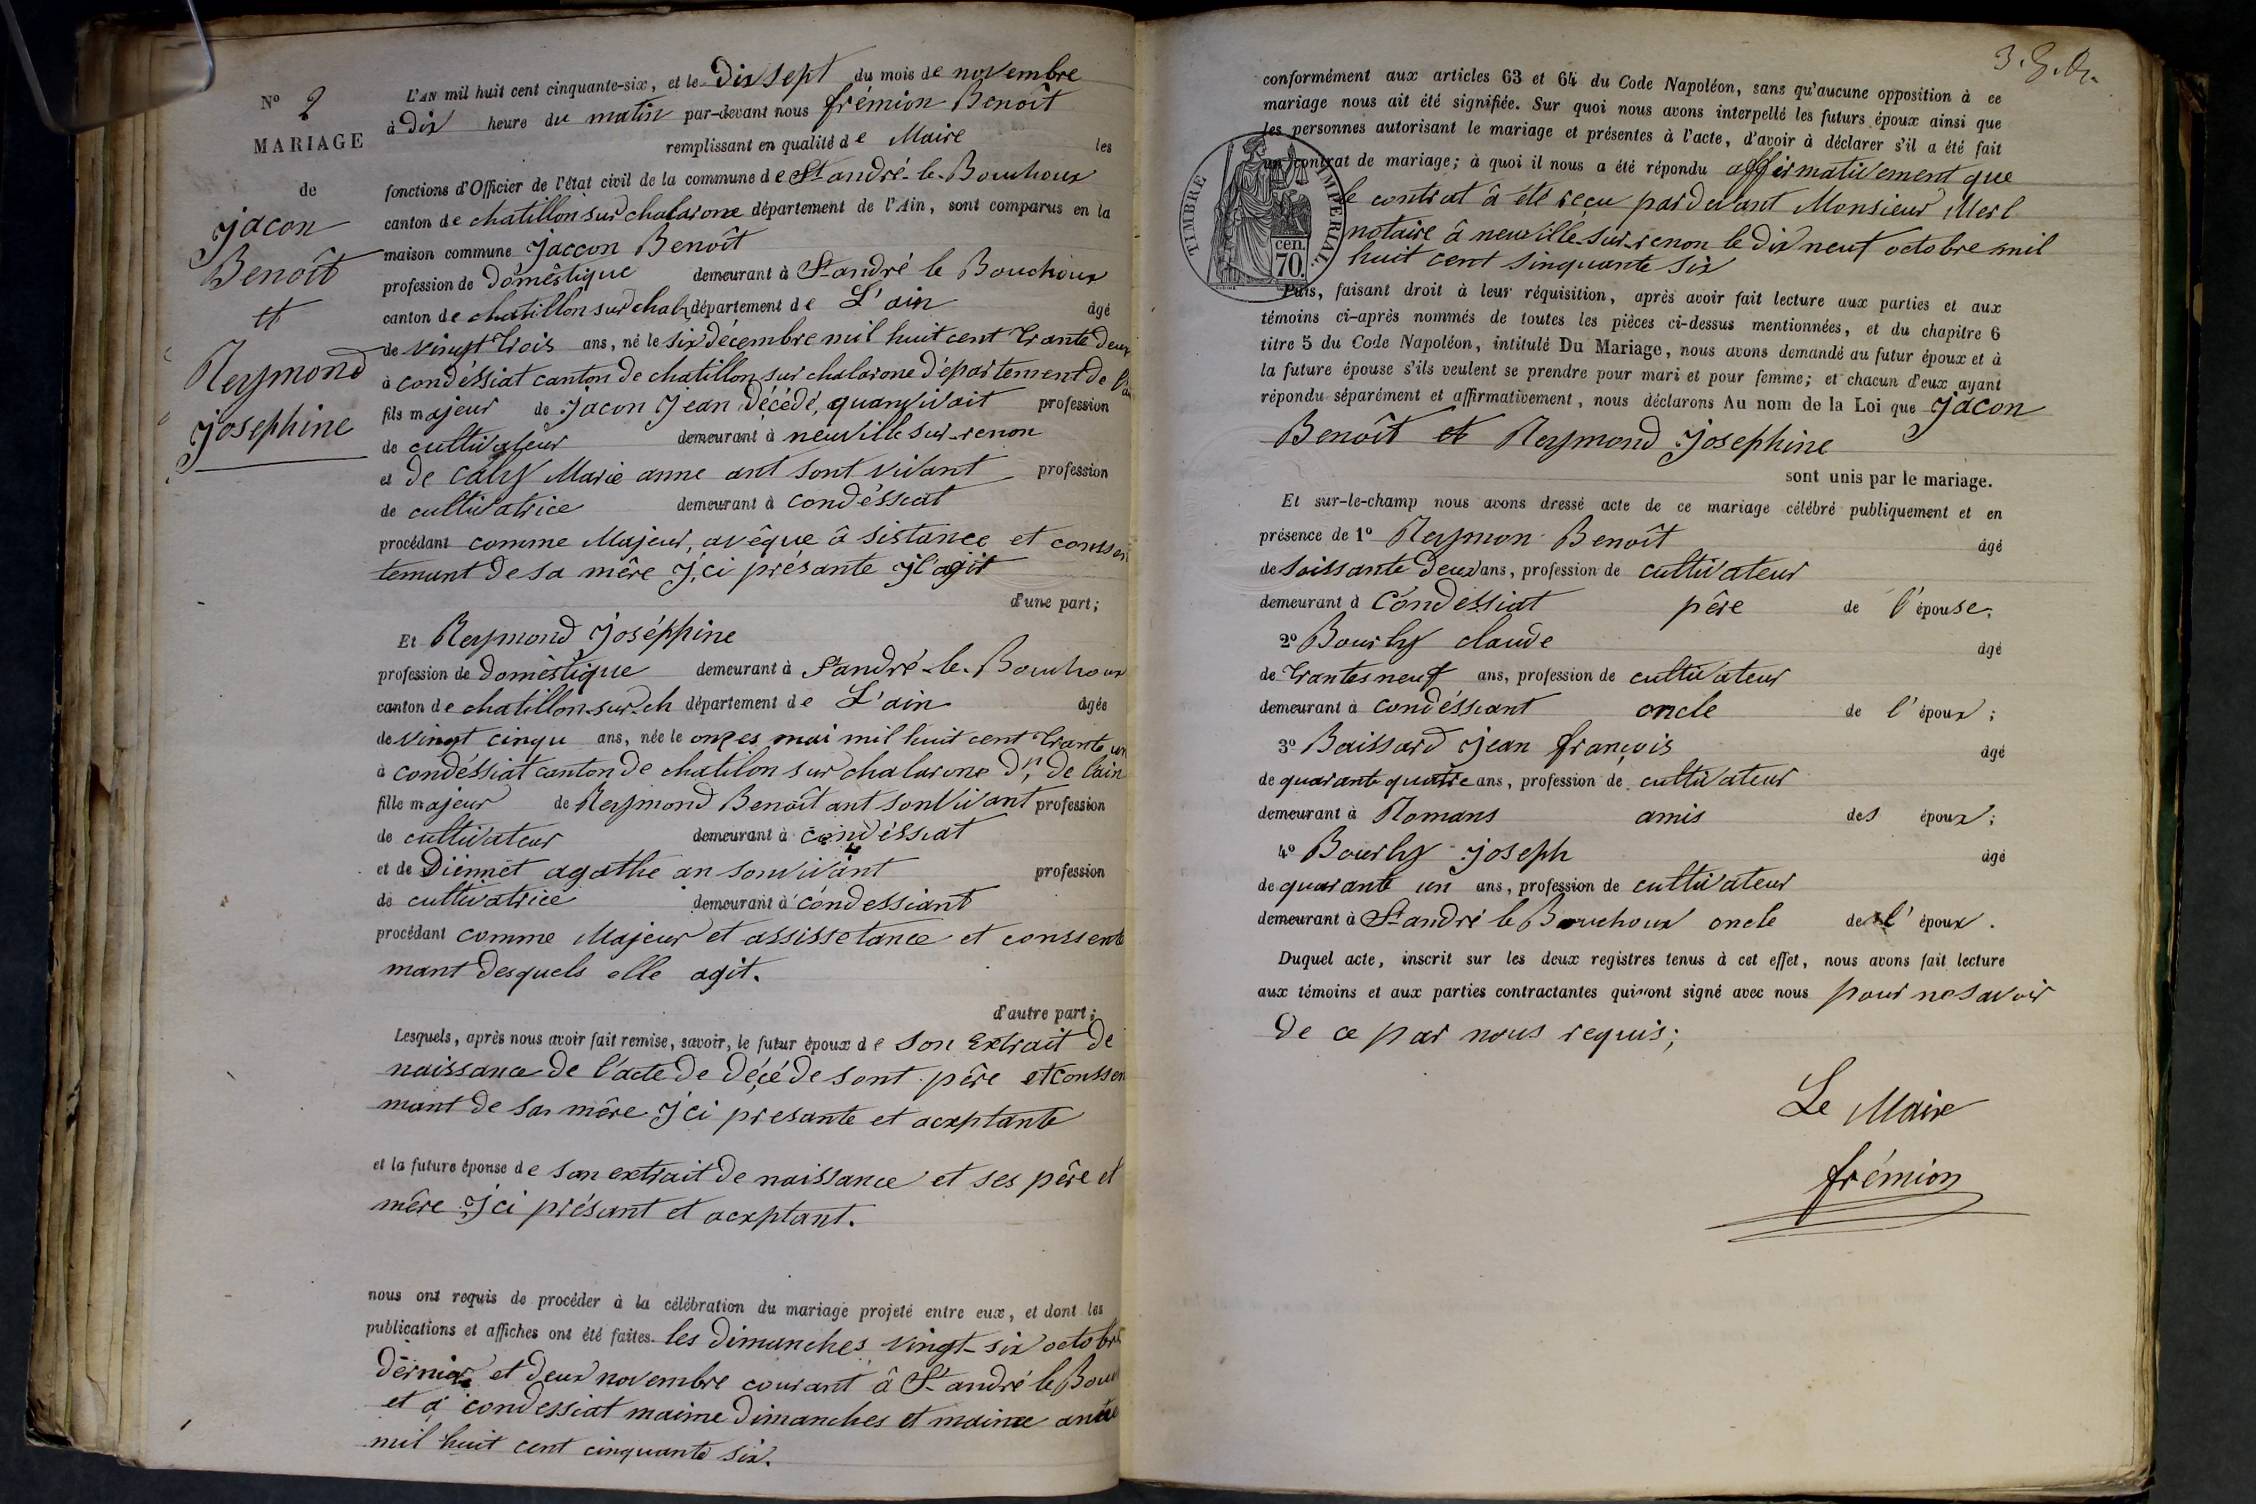 N° 2
MARIAGE
de
Jacon
Benoît
et
Reymond
Josephine
L'AN mil huit cent cinquante-six, et le Dix sept du mois de novembre
à Dix heure du matin par-devant nous frémion Benoît
remplissant en qualité de Maire les
fonctions d'Officier de l'état civil de la commune de St andré-le-Bouchoux
canton de chatillon sur chalarone département de l'Ain, sont comparus en la
maison commune Jaccon Benoît
profession de Domêstique demeurant à St andré le Bouchoux
canton de chatillon sur chal. département de L'ain âgé
de vingt trois ans, né le six décembre mil huit cent trante deux
à condéssiat canton de chatillon sur chalarone département de l'ain
fils majeur de Jacon Jean décédé, quanvivait profession
de cultivateur demeurant à neuville sur-renon
et de Caly Marie anne ant sont vivant profession
de cultivatrice demeurant à condéssiat
procédant comme Majeur, avêque â sistance et conssen
temant de sa mêre j,ci présante jl agit
d'une part;
Et Reymond Joséphine
profession de Domèstique demeurant à St andré-le-Bouchoux
canton de chatillon-sur-ch département de L'ain âgée
de vingt cinqu ans, née le onzes mai mil huit cent trante un
à condéssiat canton de chatilon sur chalarone Dt, de l'ain
fille majeur de Reymond Benoît ant sonvivant profession
de cultivateur demeurant à condéssiat
et de Diennet agathe an sonvivant profession
de cultivatrice demeurant à condessiant
procédant comme Majeur et assissetance et conssente
mant desquels elle agit.
d'autre part;
Lesquels, après nous avoir fait remise, savoir, le futur époux de son Extrait de
naissance de l'acte de décéde sont père et conssen
mant de sa mêre j'ci presante et acxptante
et la future épouse de son extrait de naissance et ses père et
mêre j'ci présant et acxptant.
nous ont requis de procéder à la célébration du mariage projeté entre eux, et dont les
publications et affiches ont été faites les dimanches vingt-six octobre
dernier et deux novembre courant â St andré le Bou
et à condessiat maime dimanches et maime année
mil huit cent cinquante six.
3. g. Or.
conformément aux articles 63 et 64 du Code Napoléon, sans qu'aucune opposition à ce
mariage nous ait été signifiée. Sur quoi nous avons interpellé les futurs époux ainsi que
les personnes autorisant le mariage et présentes à l'acte, d'avoir à déclarer s'il a été fait
un contrat de mariage; à quoi il nous a été répondu affirmativement que
le contrat â été reçu pardevant Monsieur Merl
notaire â neuville-sur-renon le dix neuf octobre mil
huit cent sinquante six
TIMBRE IMPERIAL
70 cen.
Puis, faisant droit à leur réquisition, après avoir fait lecture aux parties et aux
témoins ci-après nommés de toutes les pièces ci-dessus mentionnées, et du chapitre 6
titre 5 du Code Napoléon, intitulé Du Mariage, nous avons demandé au futur époux et à
la future épouse s'ils veulent se prendre pour mari et pour femme; et chacun d'eux ayant
répondu séparément et affirmativement, nous déclarons Au nom de la Loi que Jacon
Benoît et Reymond Josephine
sont unis par le mariage.
Et sur-le-champ nous avons dressé acte de ce mariage célébré publiquement et en
présence de 1° Reymon Benoît âgé
de soissante deux ans, profession de cultivateur
demeurant à Condessiat père de l'épouse;
2° Bourly claude âgé
de trantes neuf ans, profession de cultivateur
demeurant à condéssiant oncle de l'époux;
3° Baissard Jean françois âgé
de quarante quatre ans, profession de cultivateur
demeurant à Romans amis des époux;
4° Bourly Joseph âgé
de quarante un ans, profession de cultivateur
demeurant à St andré le Bouchoux oncle de l'époux.
Duquel acte, inscrit sur les deux registres tenus à cet effet, nous avons fait lecture
aux témoins et aux parties contractantes qui n'ont signé avec nous pour ne savoir
de ce par nous requis;
Le Maire
frémion